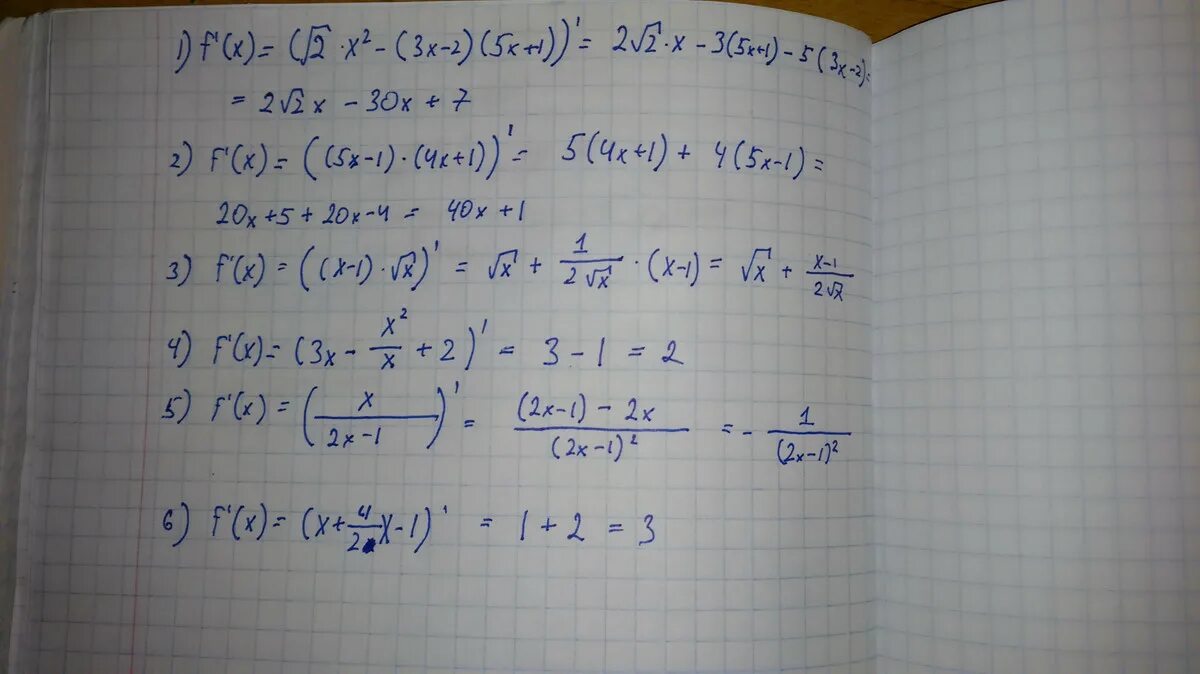 1) f'(x) = (√2 · x² - (3x-2)(5x+1))' = 2√2 · x - 3(5x+1) - 5(3x-2) =
= 2√2 x - 30x + 7
2) f'(x) = ((5x-1) · (4x+1))' = 5(4x+1) + 4(5x-1) =
20x + 5 + 20x - 4 = 40x + 1
3) f'(x) = ((x-1) · √x)' = √x + 1/(2√x) · (x-1) = √x + (x-1)/(2√x)
4) f'(x) = (3x - x²/x + 2)' = 3 - 1 = 2
5) f'(x) = (x/(2x-1))' = ((2x-1) - 2x)/(2x-1)² = - 1/(2x-1)²
6) f'(x) = (x + 4/2 x - 1)' = 1 + 2 = 3